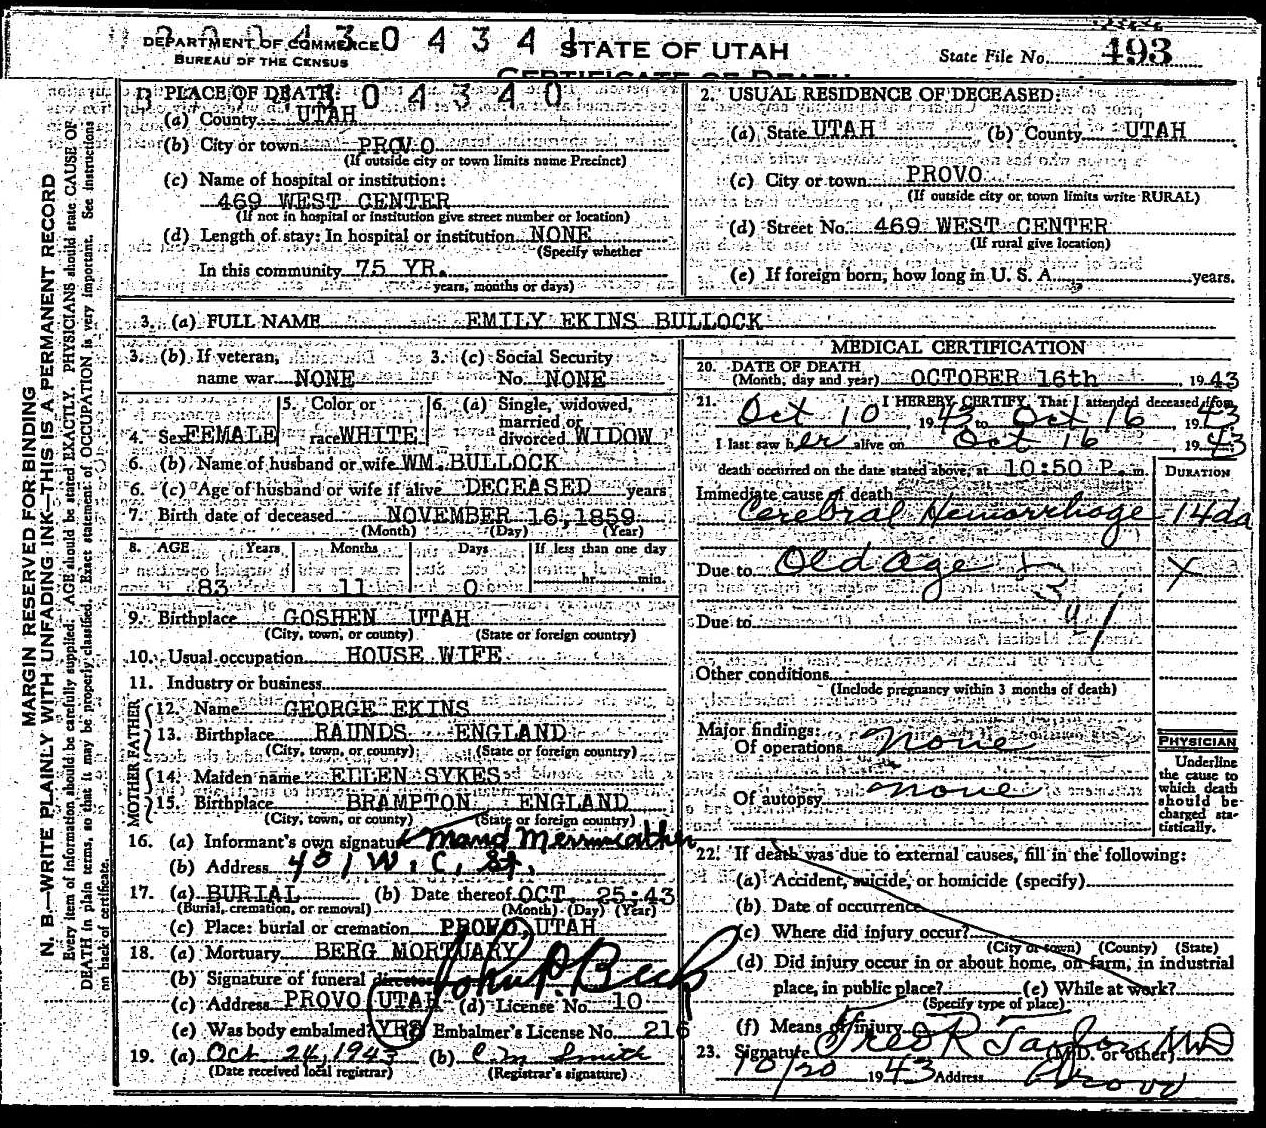 DEPARTMENT OF COMMERCE
BUREAU OF THE CENSUS
STATE OF UTAH
CERTIFICATE OF DEATH
State File No. 493
04340
1. PLACE OF DEATH:
(a) County UTAH
(b) City or town PROVO
(If outside city or town limits name Precinct)
(c) Name of hospital or institution:
469 WEST CENTER
(If not in hospital or institution give street number or location)
(d) Length of stay: In hospital or institution NONE
(Specify whether
In this community 75 YR.
years, months or days)
2. USUAL RESIDENCE OF DECEASED:
(a) State UTAH (b) County UTAH
(c) City or town PROVO
(If outside city or town limits write RURAL)
(d) Street No. 469 WEST CENTER
(If rural give location)
(e) If foreign born, how long in U. S. A. years.
3. (a) FULL NAME EMILY EKINS BULLOCK
3. (b) If veteran, name war NONE
3. (c) Social Security No. NONE
4. Sex FEMALE
5. Color or race WHITE
6. (a) Single, widowed, married or divorced WIDOW
6. (b) Name of husband or wife WM. BULLOCK
6. (c) Age of husband or wife if alive DECEASED years
7. Birth date of deceased NOVEMBER 16, 1859
(Month) (Day) (Year)
8. AGE Years Months Days If less than one day
83 11 0 hr. min.
9. Birthplace GOSHEN UTAH
(City, town, or county) (State or foreign country)
10. Usual occupation HOUSE WIFE
11. Industry or business
FATHER
12. Name GEORGE EKINS
13. Birthplace RAUNDS ENGLAND
(City, town, or county) (State or foreign country)
MOTHER
14. Maiden name ELLEN SYKES
15. Birthplace BRAMPTON ENGLAND
(City, town, or county) (State or foreign country)
16. (a) Informant's own signature Maud Merriweather
(b) Address 451 W. C. St.
17. (a) BURIAL (b) Date thereof OCT. 25:43
(Burial, cremation, or removal) (Month) (Day) (Year)
(c) Place: burial or cremation PROVO, UTAH
18. (a) Mortuary BERG MORTUARY
(b) Signature of funeral director John P Beck
(c) Address PROVO UTAH (d) License No. 10
(e) Was body embalmed? YES Embalmer's License No. 216
19. (a) Oct 24, 1943 (b) C. M. Smith
(Date received local registrar) (Registrar's signature)
MEDICAL CERTIFICATION
20. DATE OF DEATH
(Month, day and year) OCTOBER 16th, 1943
21. I HEREBY CERTIFY, That I attended deceased from
Oct 10 1943 to Oct 16, 1943
I last saw her alive on Oct 16 1943
death occurred on the date stated above, at 10:50 P. m.
DURATION
Immediate cause of death
Cerebral Hemorrhage 14da
Due to Old age X
Due to
Other conditions
(Include pregnancy within 3 months of death)
Major findings:
Of operations none
Of autopsy none
PHYSICIAN
Underline
the cause to
which death
should be
charged sta-
tistically.
22. If death was due to external causes, fill in the following:
(a) Accident, suicide, or homicide (specify)
(b) Date of occurrence
(c) Where did injury occur?
(City or town) (County) (State)
(d) Did injury occur in or about home, on farm, in industrial
place, in public place? (e) While at work?
(Specify type of place)
(f) Means of injury
23. Signature Fred R Taylor MD
(M.D. or other)
10/20 1943 Address Provo
MARGIN RESERVED FOR BINDING
N. B.—WRITE PLAINLY WITH UNFADING INK—THIS IS A PERMANENT RECORD
Every item of information should be carefully supplied. AGE should be stated EXACTLY. PHYSICIANS should state CAUSE OF
DEATH in plain terms, so that it may be properly classified. Exact statement of OCCUPATION is very important. See instructions
on back of certificate.